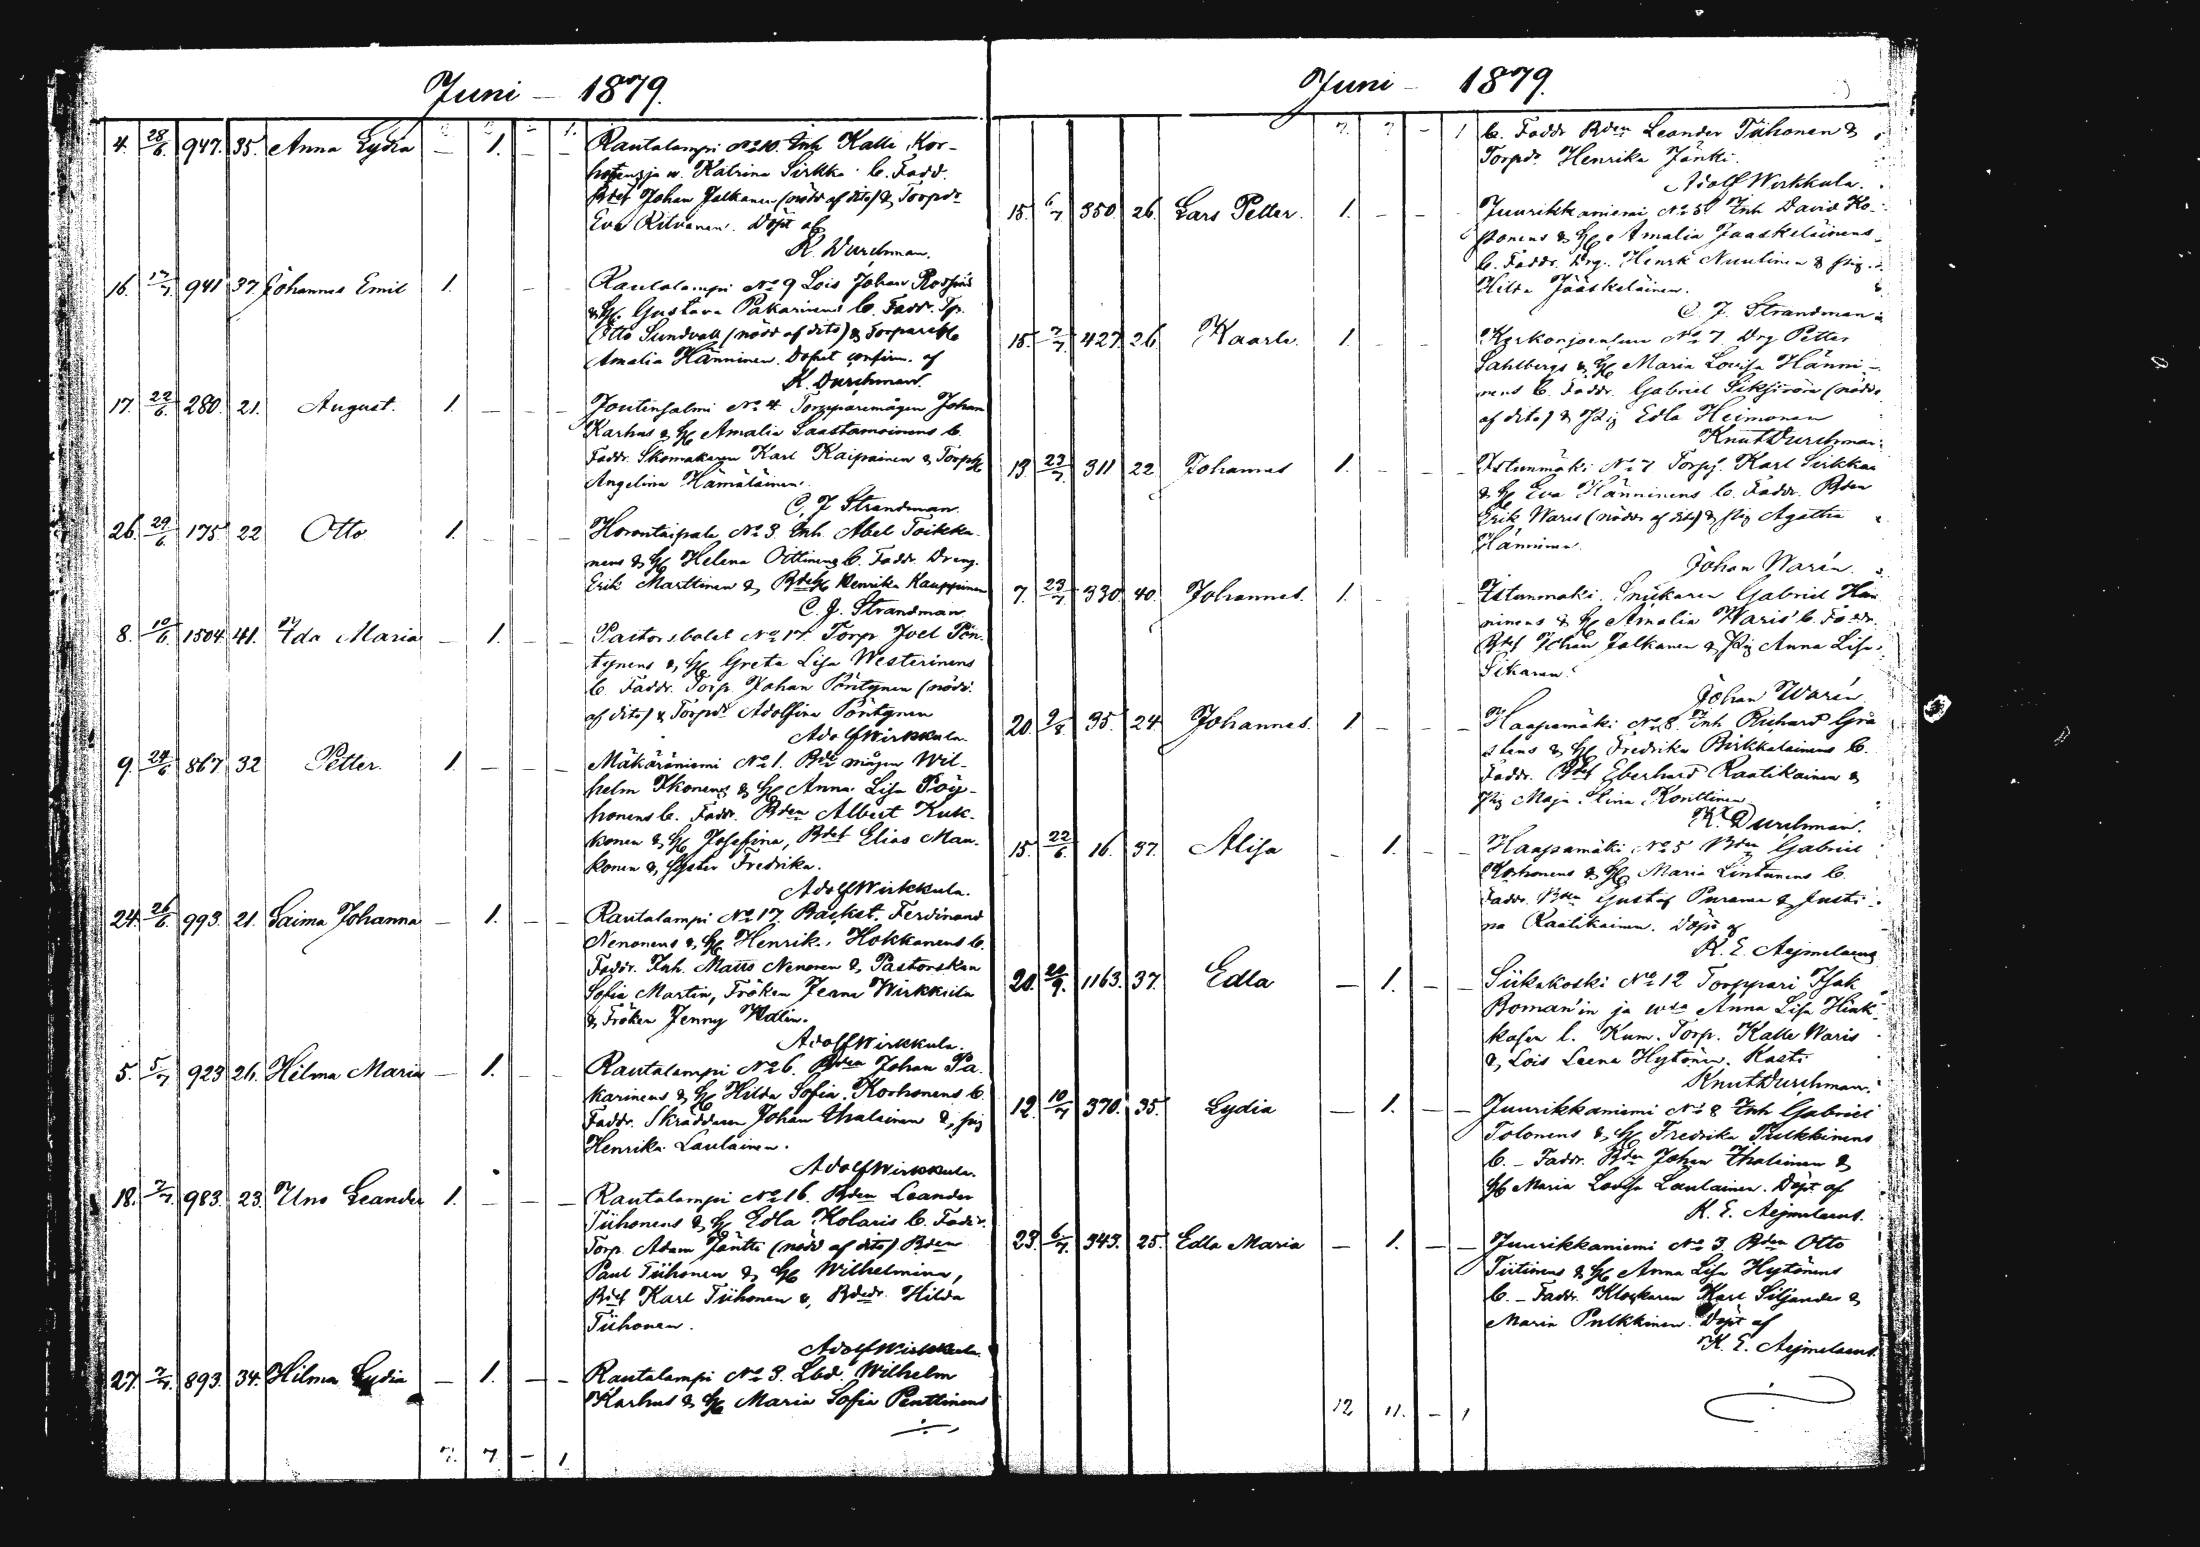 Juni – 1879.
2. 2. – 1.
4. 28/6. 947. 35. Anna Lydia – 1. – – Rautalampi No 10. Inh Kalle Kor-
hosen ja w. Katrina Sirkka b. Fadd.
Bdes Johan Jalkanen (nödd. af dito) & Torpdr
Eva Ritvanen. Döpt af
K. Durchman.
16. 17/7. 941 37 Johannes Emil 1. – – Rautalampi No 9 Lois Johan
& H. Gustava Pakarinens b. Faddr. Tp.
Otto Sundvall (nödd af dito) & Torpare
Amalia Hänninen. Döpet confirm. af
K. Durchman.
17. 22/6. 280. 21. August. 1. – – – Joutensalmi No 4. Torpparemågen Johan
Karhus & H. Amalia Laastamoinens b.
Faddr. Skomakaren Karl Kaipainen & Torp
Angelina Hämäläinen.
C. J Strandman.
26. 29/6. 175 22 Otto 1. – – – Horontaipale No 3. Inh. Abel Toikka-
nens & H. Helena Oittinens b. Faddr. Dreng.
Erik Marttinen & Henrika Kauppinen
C. J. Strandman
8. 10/6 1504. 41. Ida Maria – 1. – – Pastorsbolet No 17. Torpr Joel Pön-
tynens & H. Greta Lisa Westerinens
b. Faddr. Torp. Johan Pöntynen (nödd.
af dito) & Torpdr Adolfina Pöntynen
Adolf Wirkkula.
9. 24/6 867 32 Petter. 1. – – – Mäkäräniemi No 1. Bde mågen Wil-
helm Ikonens & H. Anna Lisa Pöy-
honens b. Faddr. Bden Albert Kuk-
konen & H. Josefina, Bdes Elias Mau-
konen & Syster Fredrika.
Adolf Wirkkula.
24. 26/6. 993. 21. Saima Johanna – 1. – – Rautalampi No 17. Backst. Ferdinand
Nenonens & H. Henrik. Hokkanens b.
Faddr. Inh. Matts Nenonen & Pastorskan
Sofia Martin, Fröken Jeane Wirkkula
& Fröken Jenny
Adolf Wirkkula.
5. 5/7 923 26. Hilma Maria – 1. – – Rautalampi No 6. Bden Johan Pa-
karinens & H. Hilda Sofia Korhonens b.
Faddr. Skräddaren Johan Ihalainen & pig
Henrika Laulainen.
Adolf Wirkkula.
18. 7/7. 983. 23. Uno Leander 1. – – – Rautalampi No 16. Bden Leander
Tiihonens & H. Edla Kolaris b. Faddr.
Torp. Adam Jäntti (nödd af dito) Bden
Paul Tiihonen & H. Wilhelmina,
Bdes Karl Tiihonen & Bdedr. Hilda
Tiihonen.
Adolf Wirkkula.
27. 7/7. 893. 34. Hilma Lydia – 1. – – Rautalampi No 3. Lbd. Wilhelm
Karhus & H. Maria Sofia Penttinens
7. 7 – 1.
Juni – 1879.
7. 7 – 1 b. Faddr Bden Leander Tiihonen &
Torpdr Henrika Jäntti.
Adolf Wirkkula.
15. 6/7 350. 26. Lars Petter. 1. – – Juurikkaniemi No 5 Inh David Ko-
ponens & H. Amalia Jääskeläinens
b. Faddr. Drg. Henrik Nuutinen & pig.
Hilda Jääskeläinen.
C. J. Strandman
15. 7/7. 427. 26. Kaarle 1. – – Kerkonjoensuu No 7 Drg Petter
Sahlbergs & H. Maria Lovisa Hänni-
nens b. Faddr. Gabriel Sikström (nödd.
af dito) & Pig Edla Heimonen
Knut Durchman.
13. 23/7. 311 22. Johannes 1. – – – Istunmäki No 7 Torp. Karl Sirkkas
& H. Eva Hänninens b. Faddr. Bden
Erik Waris (nödd af dito) & pig Agatha
Hänninen.
Johan Warén.
7. 23/7 330. 40. Johannes. 1. – Istunmäki. Snickaren Gabriel Hän-
ninens & H. Amalia Waris' b. Faddr.
Bdes Johan Jalkanen & Pig Anna Lisa
Sikanen.
Johan Warén
20. 9/8. 35. 24. Johannes. 1 – – – Haapamäki No 8. Inh Richard Grå
stens & H. Fredrika Pirkkalainens b.
Faddr. Bdes Eberhard Raatikainen &
Pig Maja Stina Konttinen
K. Durchman.
15. 22/6. 16. 37. Alisa – 1. – – Haapamäki No 5 Bden Gabriel
Korhonens & H. Maria Lintunens b.
Faddr. Bden Gustaf Puranen & Justi-
na Raatikainen. Döpt af
K. E. Aejmelaeus
20. 20/9. 1163. 37. Edla – 1. – – Siikakoski No 12 Torppari Isak
Boman'in ja wda Anna Lisa Hink-
kasen l. Kum. Torp. Kalle Waris
& Lois Leena Hytönen. Kasti
Knut Durchman.
12. 10/7 370. 35. Lydia – 1. – – Juurikkaniemi No 8 Inh Gabriel
Tolonens & H. Fredrika Pulkkinens
b. – Faddr. Bden Johan Ihalainen &
H. Maria Lovisa Laulainen. Döpt af
K. E. Aejmelaeus.
23. 6/7. 343. 25. Edla Maria – 1. – – Juurikkaniemi No 3. Bden Otto
Tiitinens & H. Anna Lisa Hytönens
b. – Faddr. Klockaren Karl Siljander &
Maria Pulkkinen. Döpt af
K. E. Aejmelaeus.
12 11. – 1